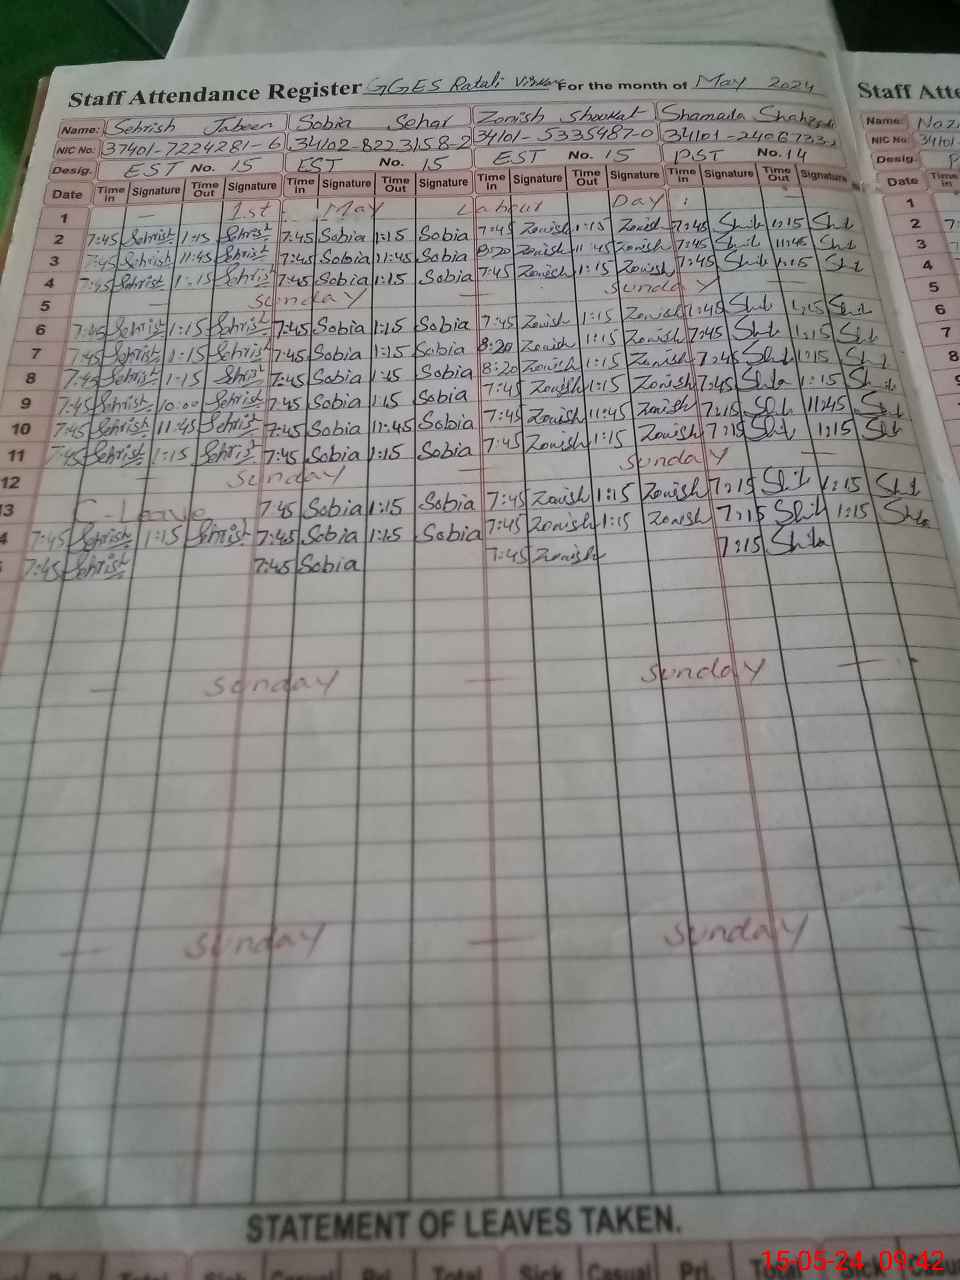 Staff Attendance Register GGES Ratali For the month of May 2024
Staff Atte
Name: Sehrish Jabeen Sobia Sehar Zonish Shoukat Shamaila
Name: Naz
NIC No: 37401-7224281-6 34102-8223158-2 34101-5335487-0 34101-2406733
NIC No: 34101
Desig. EST No. 15 EST No. 15 EST No. 15 PST No. 14
Desig. P
Date Time in Signature Time Out Signature Time in Signature Time Out Signature Time in Signature Time Out Signature Time in Signature Time Out Signature
Date Time in
1 — 1st May Labour Day —
2 7:45 Sehrish 1:15 Sehrish 7:45 Sobia 1:15 Sobia 7:45 Zonish 1:15 Zonish 7:45 1:15
3 7:45 Sehrish 11:45 Sehrish 7:45 Sobia 11:45 Sobia 8:20 Zonish 11:45 Zonish 7:45 11:45
4 7:45 Sehrish 1:15 Sehrish 7:45 Sobia 1:15 Sobia 7:45 Zonish 1:15 Zonish 7:45 1:15
5 — Sunday — Sunday —
6 7:45 Sehrish 1:15 Sehrish 7:45 Sobia 1:15 Sobia 7:45 Zonish 1:15 Zonish 7:45 1:15
7 7:45 Sehrish 1:15 Sehrish 7:45 Sobia 1:15 Sobia 8:20 Zonish 1:15 Zonish 7:45 1:15
8 7:45 Sehrish 1:15 Sehrish 7:45 Sobia 1:15 Sobia 8:20 Zonish 1:15 Zonish 7:45 1:15
9 7:45 Sehrish 10:00 Sehrish 7:45 Sobia 1:15 Sobia 7:45 Zonish 1:15 Zonish 7:45 1:15
10 7:45 Sehrish 11:45 Sehrish 7:45 Sobia 11:45 Sobia 7:45 Zonish 11:45 Zonish 7:15 11:45
11 7:45 Sehrish 1:15 Sehrish 7:45 Sobia 1:15 Sobia 7:45 Zonish 1:15 Zonish 7:15 1:15
12 — Sunday — Sunday —
13 C-Leave 7:45 Sobia 1:15 Sobia 7:45 Zonish 1:15 Zonish 7:15 1:15
4 7:45 Sehrish 1:15 Sehrish 7:45 Sobia 1:15 Sobia 7:45 Zonish 1:15 Zonish 7:15 1:15
7:45 Sehrish 7:45 Sobia 7:45 Zonish 7:15
— Sunday — Sunday —
— Sunday — Sunday —
1
2
3
4
5
6
7
8
STATEMENT OF LEAVES TAKEN.
Casual Pri. Total Sick Casual Pri.
15-05-24 09:42